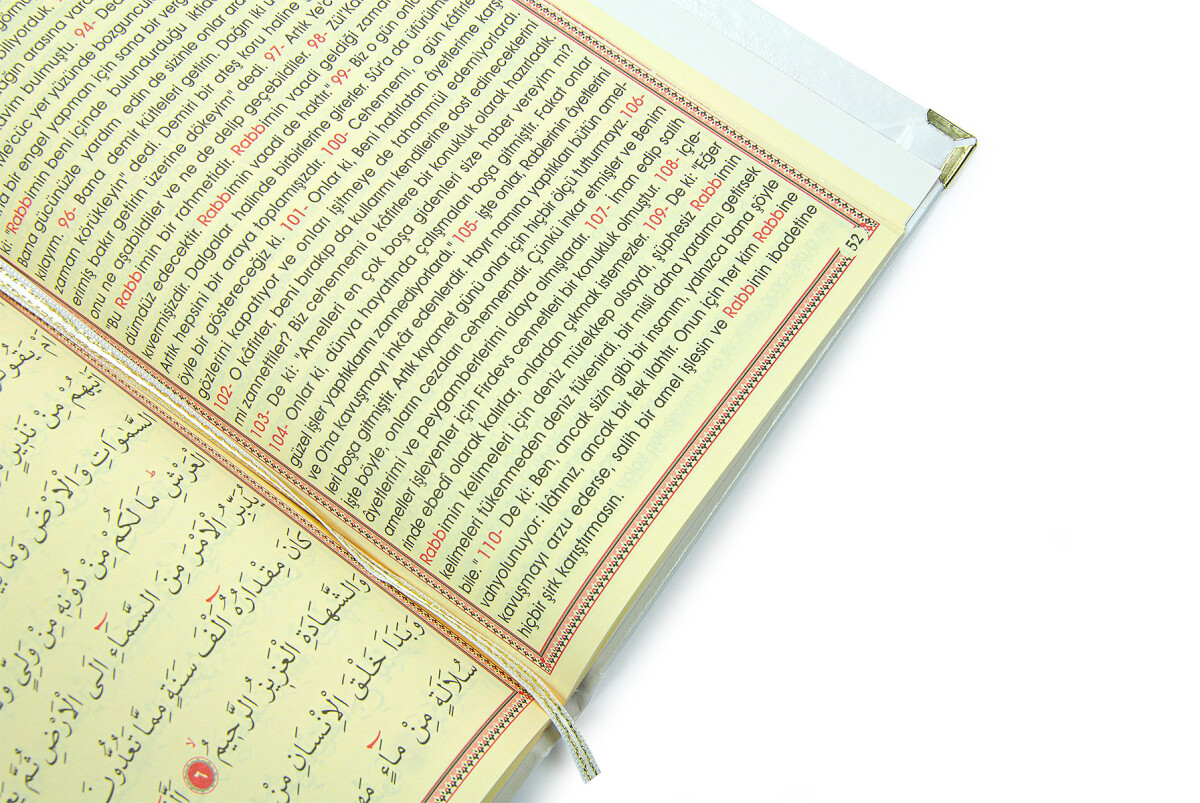 biliyorduk.
ayim bulmuştu. 94-
Me'cüc yer yüzünde bozguncu
a bir engel yapman için sana bir verg
ki: "Rabbimin beni içinde bulundurduğu iktid
Bana gücünüzle yardım edin de sizinle onlar ara
kılayım" 96- Bana demir kütleleri getirin. Dağın iki u
zaman körükleyin" dedi. Demiri bir ateş koru haline
erimiş bakır getirin üzerine dökeyim" dedi. 97- Artık Ye'c
onu ne aşabildiler ve ne de delip geçebildiler. 98- Zül Ka
"Bu Rabbimin bir rahmetidir. Rabbimin vaadi geldiği zaman
dümdüz edecektir. Rabbimin vaadi de haktır." 99- Biz o gün onla
kıvermişizdir. Dalgalar halinde birbirlerine girerler, Sûr'a da üfürülm
Artık hepsini bir araya toplamışızdır. 100- Cehennemi, o gün kâfirle
öyle bir göstereceğiz ki. 101- Onlar ki, Beni hatırlatan âyetlerime karşı
gözlerini kapatıyor ve onları işitmeye de tahammül edemiyorlardı.
102- O kâfirler, beni bırakıp da kullarımı kendilerine dost edineceklerini
mi zannettiler? Biz cehennemi o kâfirlere bir konukluk olarak hazırladık.
103- De ki: "Amelleri en çok boşa gidenleri size haber vereyim mi?
104- Onlar ki, dünya hayatında çalışmaları boşa gitmiştir. Fakat onlar
güzel işler yaptıklarını zannediyorlardı." 105- İşte onlar, Rablerinin âyetlerini
ve O'na kavuşmayı inkâr edenlerdir. Hayır namına yaptıkları bütün amel-
leri boşa gitmiştir. Artık kıyamet günü onlar için hiçbir ölçü tutturmayız. 106-
İşte böyle, onların cezaları cehennemdir. Çünkü inkar etmişler ve Benim
âyetlerimi ve peygamberlerimi alaya almışlardır. 107- İman edip salih
ameller işleyenler için Firdevs cennetleri bir konukluk olmuştur. 108- İçle-
rinde ebedî olarak kalırlar, onlardan çıkmak istemezler. 109- De ki: "Eğer
Rabbimin kelimeleri için deniz mürekkep olsaydı, şüphesiz Rabbimin
kelimeleri tükenmeden deniz tükenirdi, bir misli daha yardımcı getirsek
bile." 110- De ki: Ben, ancak sizin gibi bir insanım, yalnızca bana şöyle
vahyolunuyor: İlâhınız, ancak bir tek ilahtır. Onun için her kim Rabbine
kavuşmayı arzu ederse, salih bir amel işlesin ve Rabbinin ibadetine
hiçbir şirk karıştırmasın.
52
مِنْ نَذِيرٍ
السَّمٰوَاتِ وَالْاَرْضَ وَمَا
الْعَرْشِ مَا لَكُمْ مِنْ دُونِهِ مِنْ وَلِيٍّ
يُدَبِّرُ الْاَمْرَ مِنَ السَّمَٓاءِ اِلَى الْاَرْضِ ثُمَّ
كَانَ مِقْدَارُهُٓ اَلْفَ سَنَةٍ مِمَّا تَعُدُّونَ
وَالشَّهَادَةِ الْعَزِيزُ الرَّحِيمُ ٦
وَبَدَاَ خَلْقَ الْاِنْسَانِ مِنْ
سُلَالَةٍ مِنْ مَٓاءٍ